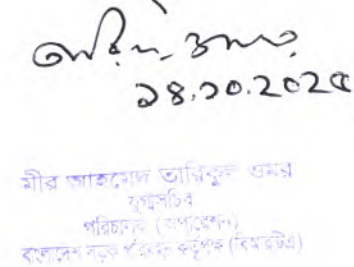 ১৪.১০.২০২৫
মীর আহমেদ তারিকুল ওমর
যুগ্মসচিব
পরিচালক (অপারেশন)
বাংলাদেশ সড়ক পরিবহন কর্তৃপক্ষ (বিআরটিএ)